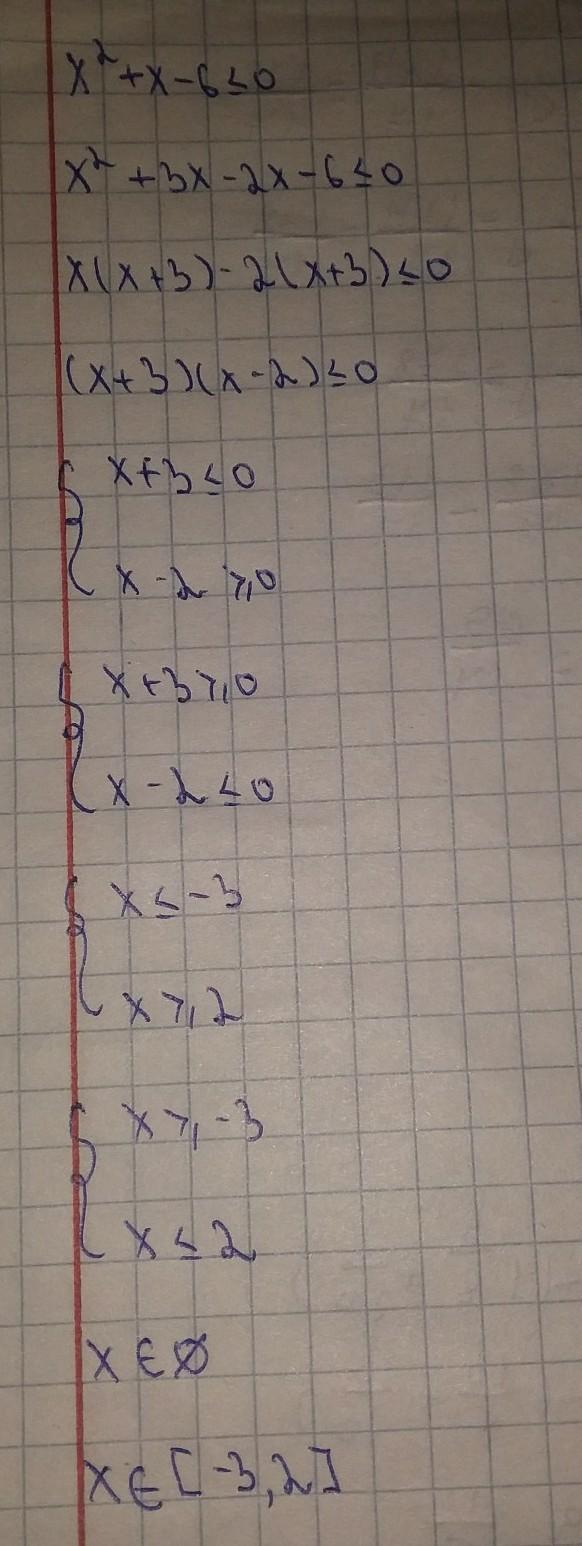 x² + x - 6 ≤ 0
x² + 3x - 2x - 6 ≤ 0
x(x+3) - 2(x+3) ≤ 0
(x+3)(x-2) ≤ 0
{ x+3 ≤ 0
x - 2 ≥ 0
{ x+3 ≥ 0
x - 2 ≤ 0
{ x ≤ -3
x ≥ 2
{ x ≥ -3
x ≤ 2
x ∈ ∅
x ∈ [-3, 2]